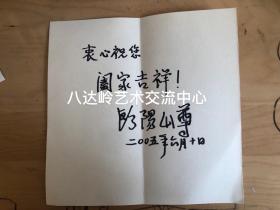 衷心祝您
阖家吉祥!
八达岭艺术交流中心
欧阳山尊
二00五年六月十日